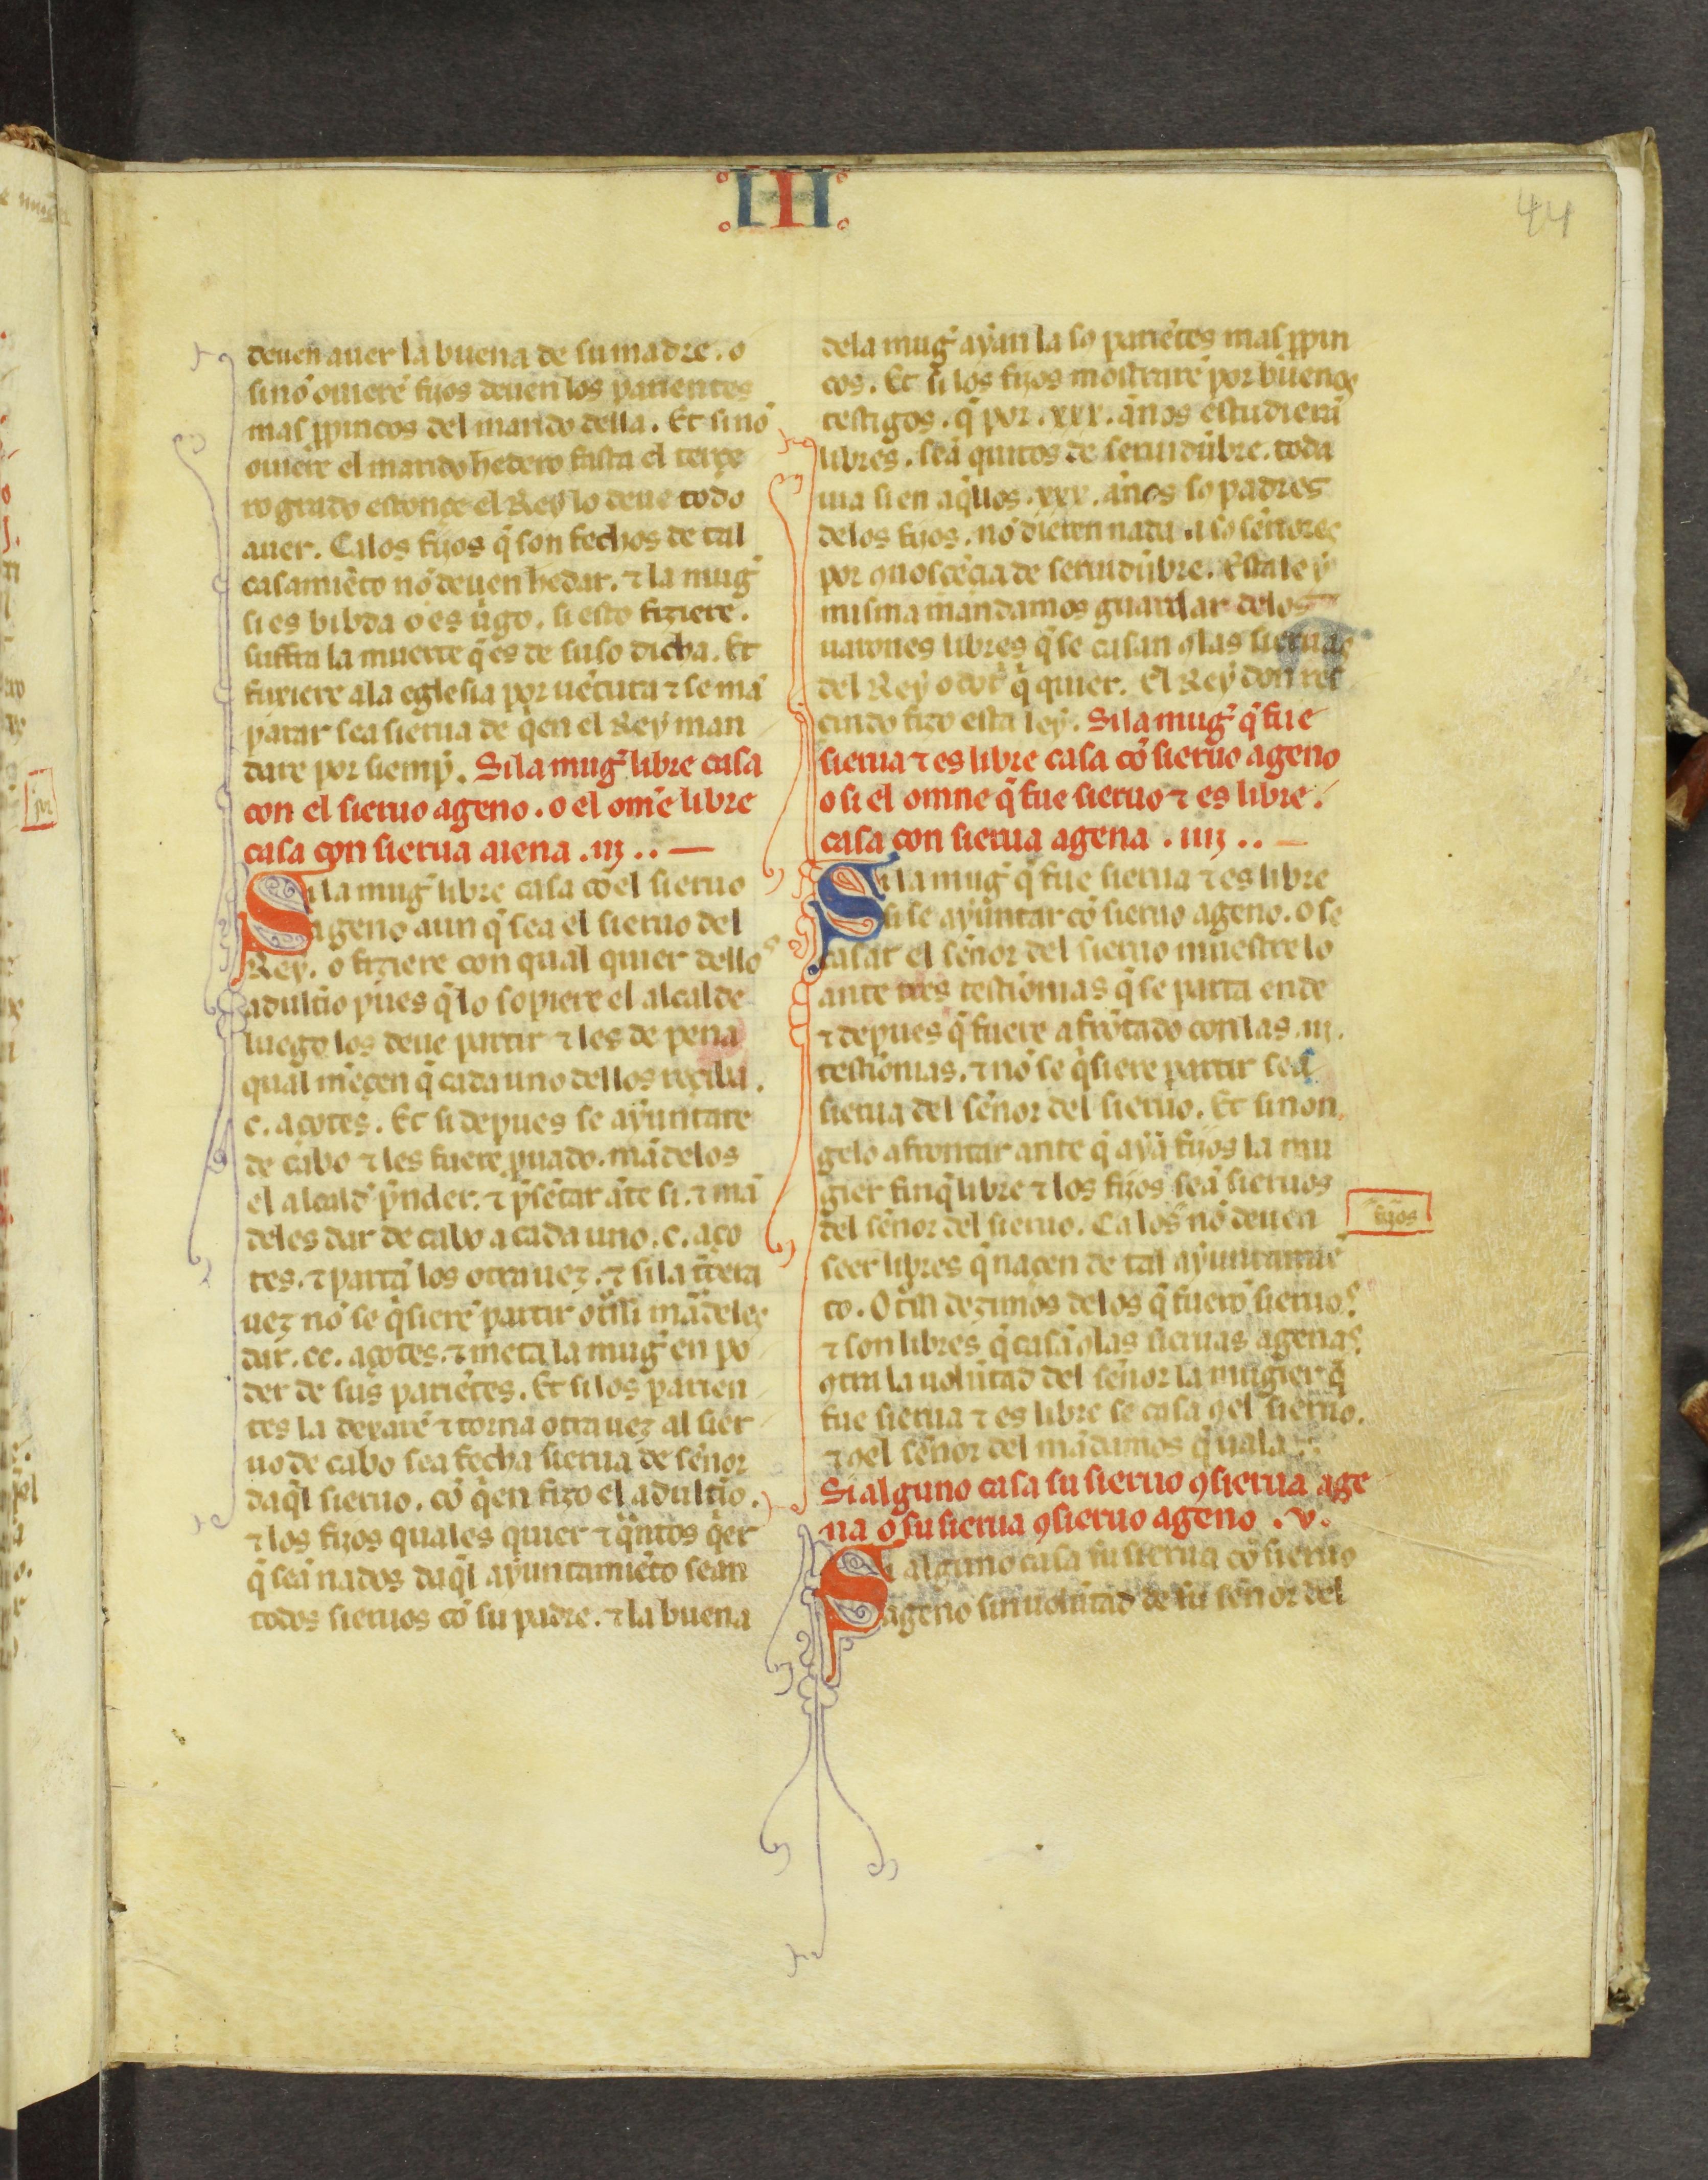 III
44
deuen auer la buena de su madre. o
sinõ ouierẽ fijos deuen los parientes
mas ꝓpincos del marido della. Et sinõ
ouiere el marido hedero fasta el terçe
ro grado estonçe el Rey lo deue todo
auer. Ca los fijos q̃ son fechos de tal
casamiẽto nõ deuen hedar. ⁊ la mug̃
si es bibda o es ũgo. si esto fiziere.
suffra la muerte q̃ es de suso dicha. Et
fuxiere ala eglesia por uẽtura ⁊ se mã
parar sea sierua de q̃en el Rey man
dare por siemp̃. Si la mug̃ libre casa
con el sieruo ageno. o el om̃e libre
casa con sierua aiena .iij..
Si la mug̃ libre casa cõel sieruo
ageno aun q̃ sea el sieruo del
Rey. o fiziere con qual quier dellos
adult̃io pues q̃ lo sopiere el alcalde
luego los deue partir ⁊ les de pena
qual m̃eçen q̃ cada uno dellos reçiba.
c. açotes. Et si depues se ayuntare
de cabo ⁊ les fuere ꝓuado. mãdelos
el alcald̃ p̃nder. ⁊ p̃sẽtar ãte si. ⁊ mã
deles dar de cabo a cada uno. c. aço
tes. ⁊ partã los otra uez. ⁊ si la t̃çera
uez nõ se q̃sierẽ partir ot̃ssi mãdeles
dar. cc. açotes. ⁊ meta la mug̃ en po
der de sus pariẽtes. Et si los parien
tes la dexarẽ ⁊ torna otra uez al sier
uo de cabo sea fecha sierua de señor
daq̃l sieruo. cõ q̃en fizo el adult̃io.
⁊ los fijos quales quier ⁊ q̃ntos q̃er
q̃ seã nados daq̃l ayuntamiẽto sean
todos sieruos cõ su padre. ⁊ la buena
dela mug̃ ayan la so pariẽtes mas ꝓpin
cos. Et si los fijos mostrarẽ por buenos
testigos. q̃ por .xxx. años estudierũ
libres. seã quitos de seruidũbre. toda
uia si en aq̃llos .xxx. años so padres
delos fijos. nõ dieren nada a so señores
por ꝯnosçẽcia de seruidũbre. Esta ley
misma mandamos guardar delos
uarones libres q̃ se casan ꝯlas sieruas
del Rey o dot̃ q̃ quier. El Rey don rec
cindo fizo esta ley. Si la mug̃ q̃ fue
sierua ⁊ es libre casa cõ sieruo ageno
o si el omne q̃ fue sieruo ⁊ es libre.
casa con sierua agena .iiij..
Si la mug̃ q̃ fue sierua ⁊ es libre
si se ayuntar cõ sieruo ageno. o se
casar el señor del sieruo muestre lo
ante tres testiõnias q̃ se parta ende
⁊ depues q̃ fuere afrõtado con las .iij.
testiõnias. ⁊ nõ se q̃siere partir sea
sierua del señor del sieruo. Et sinon
gelo afrontar ante q̃ ayã fijos la mu
gier finq̃ libre ⁊ los fijos seã sieruos
del señor del sieruo. Ca los nõ deuen
fijos
seer libres q̃ naçen de tal ayuntamiẽ
to. Ot̃ssi dezimos delos q̃ fuerõ sieruos
⁊ son libres q̃ casã ꝯlas sieruas agenas
ꝯtra la uolũtad del señor la mugier q̃
fue sierua ⁊ es libre se casa ꝯel sieruo.
⁊ ꝯel señor del mãdamos q̃ uala
Si alguno casa su sieruo ꝯ sierua age
na o su sierua ꝯ sieruo ageno .v.
Si alguno casa su sierua cõ sieruo
ageno sin uolũtad de su señor del